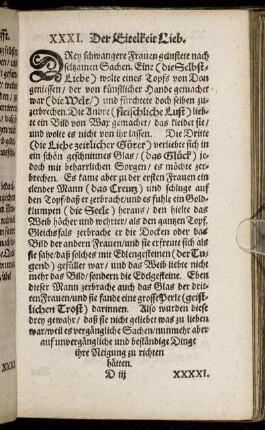 XXXI. Der Eitelkeit Lieb.
DRey schwangere Frauen gelustete nach
seltzamen Sachen. Eine (die Selbst-
Liebe) wolte eines Topfs von Don
geniessen/ der von künstlicher Hande gemachet
war (die Welt/) und fürchtete doch selben zu-
zerbrechen. Die Andre (fleischliche Lust) lieb-
te ein Bild von War gemachet/ das liedet sie/
und wolte es nicht von ihr lassen. Die Dritte
(die Liebe zeitlicher Güter) verliebte sich in
ein schön geschnittnes Glas/ (das Glück) je-
doch mit beharrlichen Sorgen/ es möchte zer-
brechen. Es kame aber zu der ersten Frauen ein
elender Mann (das Creutz) und schluge auf
den Topf/ daß er zerbrache/ und es fuhle ein Gold-
klumpen (die Seele) heraus/ den hielt das
Weib höcher und wehrter/ als den gantzen Topf.
Gleichsfals zerbrache er die Docken oder das
Bild der andern Frauen/ und sie erfreute sich als
sie sahe/ daß solches mit Edlengesteinen (der Tu-
gend) gefüllet war/ und das Weib liebte nicht
mehr das Bild/ sondern die Edelgesteine. Eben
dieser Mann zerbrache auch das Glas der drit-
ten Frauen/ und sie fande eine grosse Perle (geist-
lichen Trost) darinnen. Also wurden diese
drey gewahr/ daß sie nicht geliebet was zu lieben
war/ weil es vergängliche Sachen/ nunmehr aber
auf unvergängliche und beständige Dinge
ihre Neigung zu richten
hätten.
D iij XXXXI.